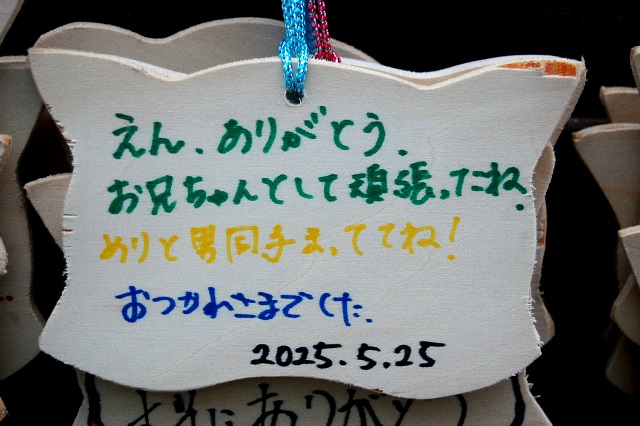 えん、ありがとう.
お兄ちゃんとして頑張ったね.
めりと男同手まっててね!
おつかれさまでした.
2025.5.25
ありがとう